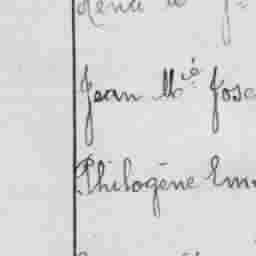 Jean Mié Jose
Philogène Em